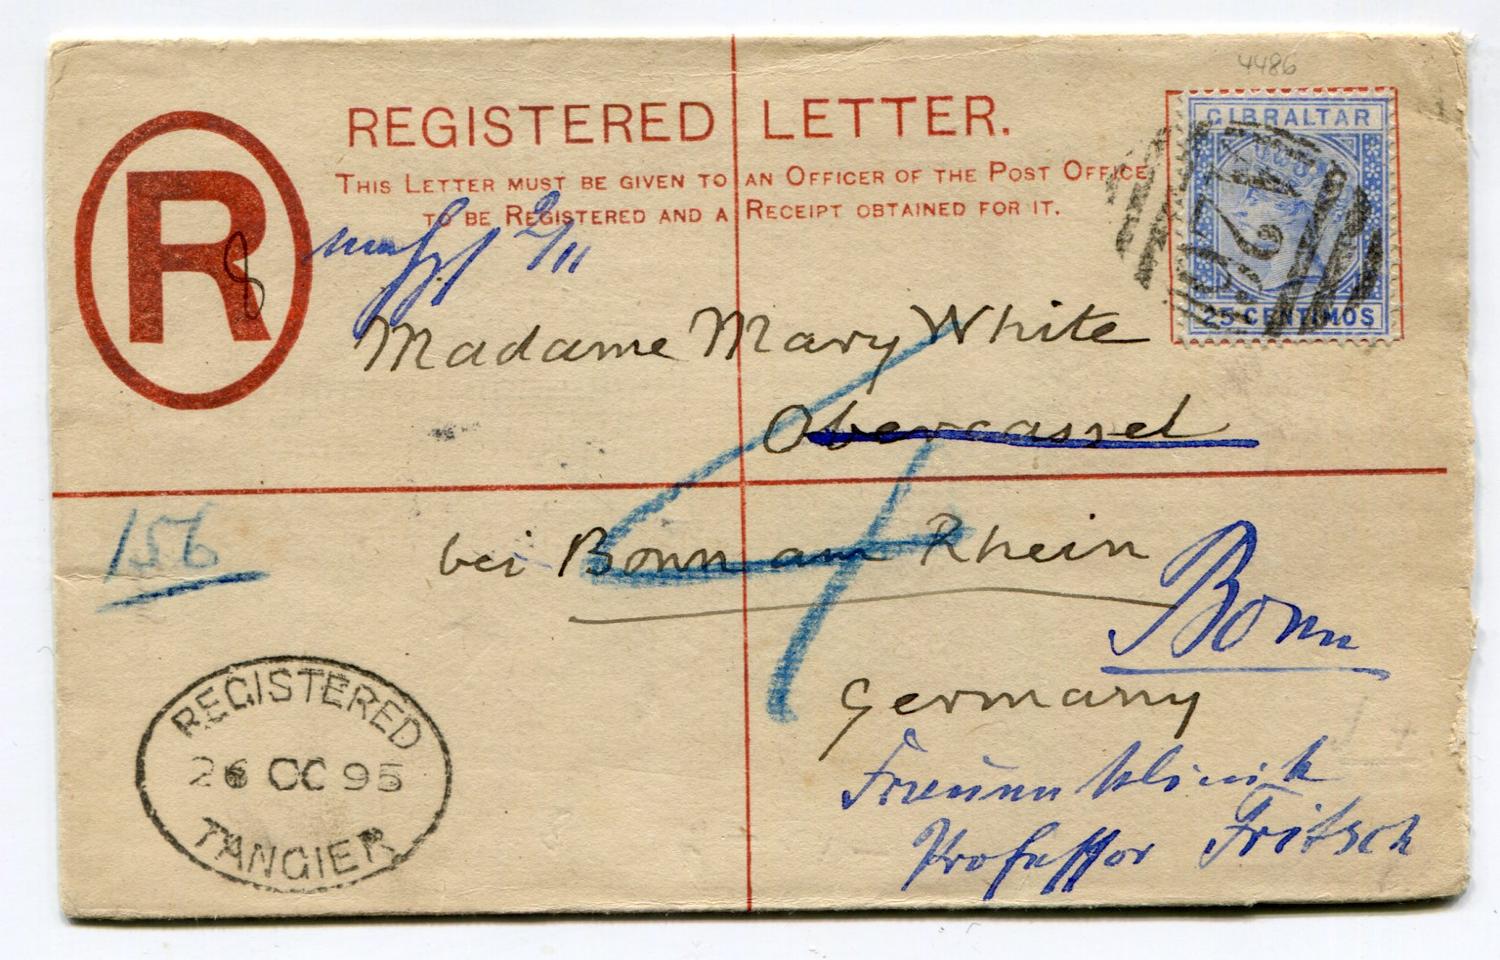 4486
REGISTERED LETTER.
THIS LETTER MUST BE GIVEN TO AN OFFICER OF THE POST OFFICE
TO BE REGISTERED AND A RECEIPT OBTAINED FOR IT.
R
8
GIBRALTAR
25 CENTIMOS
2/11
Madame Mary White
Obercassel
bei Bonn am Rhein
156
Bonn
Germany
Frauenklinik
Professor Fritsch
REGISTERED
26 OC 95
TANGIER